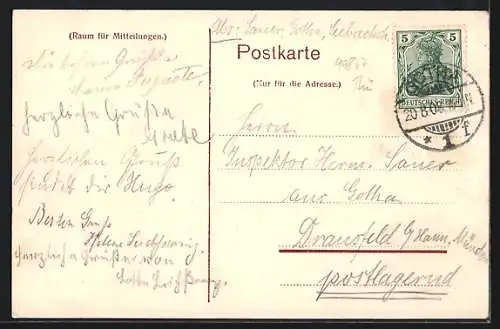 (Raum für Mitteilungen.)
Die besten Grüße
herzliche Grüße
Grete
herzlichen Gruß
sendet dir Hugo.
Besten Gruß
Helene
Herzliche Grüße von
Lotte
Abs: Sauer, Gotha, Seebachstr.
Postkarte
(Nur für die Adresse.)
Herrn
Inspektor Herm. Sauer
aus Gotha
Dransfeld b/ Hann. Münden
postlagernd
5 5
DEUTSCHES REICH
GOTHA
20.8.04
* 1 f